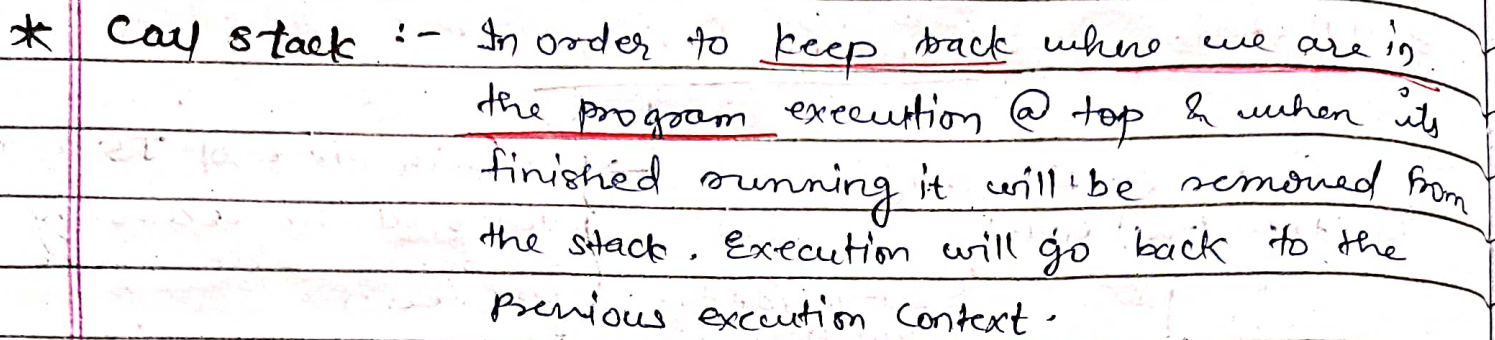 * Call stack :- In order to keep track where we are in
the program execution @ top & when its
finished running it will be removed from
the stack. Execution will go back to the
previous execution context.